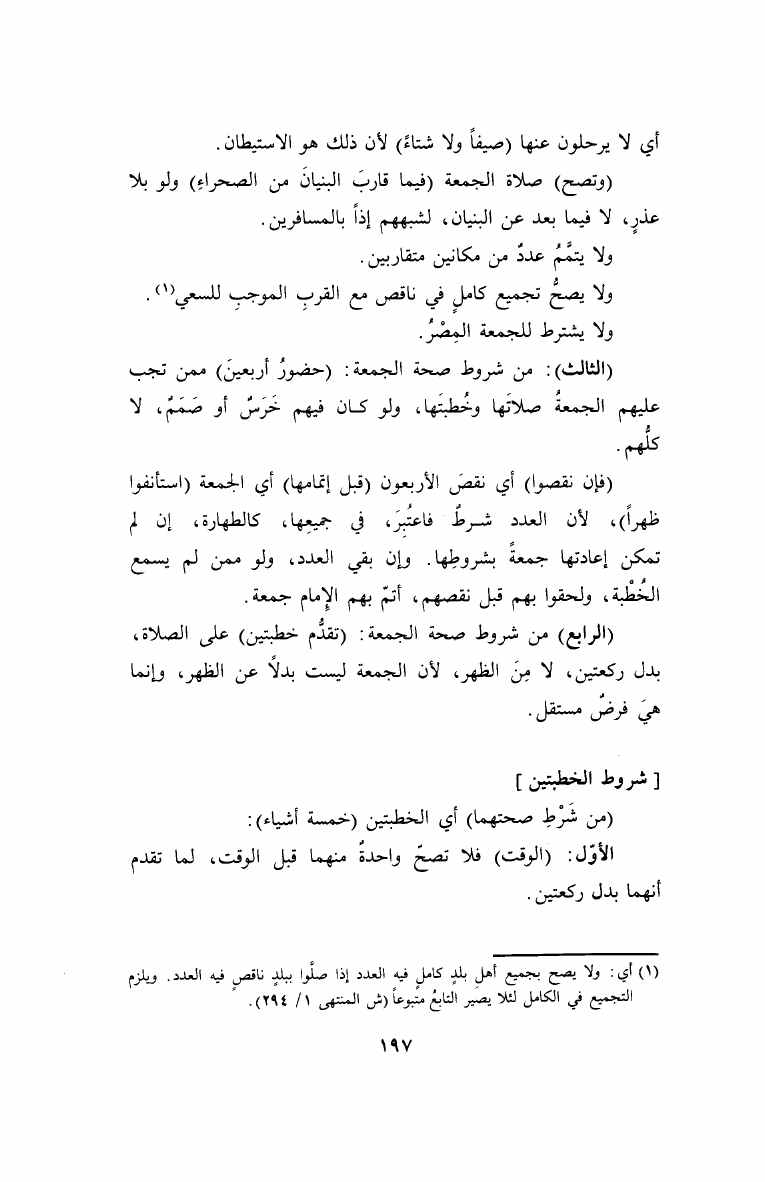 أي لا يرحلون عنها (صيفاً ولا شتاءً) لأن ذلك هو الاستيطان.
(وتصح) صلاة الجمعة (فيما قاربَ البنيانَ من الصحراءِ) ولو بلا
عذرٍ، لا فيما بعد عن البنيان، لشبههم إذاً بالمسافرين.
ولا يتمَّمُ عددٌ من مكانين متقاربين.
ولا يصحُّ تجميع كاملٍ في ناقص مع القربِ الموجبِ للسعي(١).
ولا يشترط للجمعة المِصْرُ.
(الثالث): من شروط صحة الجمعة: (حضورُ أربعينَ) ممن تجب
عليهم الجمعةُ صلاتَها وخُطبتَها، ولو كان فيهم خَرَسٌ أو صَمَمٌ، لا
كلُّهم.
(فإن نقصوا) أي نقصَ الأربعون (قبل إتمامها) أي الجمعة (استأنفوا
ظهراً)، لأن العدد شرطٌ فاعتُبِرَ، في جميعِها، كالطهارة، إن لم
تمكن إعادتها جمعةً بشروطِها. وإن بقي العدد، ولو ممن لم يسمع
الخُطْبة، ولحقوا بهم قبل نقصهم، أتمّ بهم الإمام جمعة.
(الرابع) من شروط صحة الجمعة: (تقدُّم خطبتين) على الصلاة،
بدل ركعتين، لا مِنَ الظهر، لأن الجمعة ليست بدلاً عن الظهر، وإنما
هيَ فرضٌ مستقل.
[شروط الخطبتين]
(من شَرْطِ صحتهما) أي الخطبتين (خمسة أشياء):
الأوّل: (الوقت) فلا تصحّ واحدةٌ منهما قبل الوقت، لما تقدم
أنهما بدل ركعتين.
(١) أي: ولا يصح بجميع أهلِ بلدٍ كاملٍ فيه العدد إذا صلَّوا ببلدٍ ناقصٍ فيه العدد. ويلزم
التجميع في الكامل لئلا يصير التابعُ متبوعاً (ش المنتهى ١/ ٢٩٤).
١٩٧